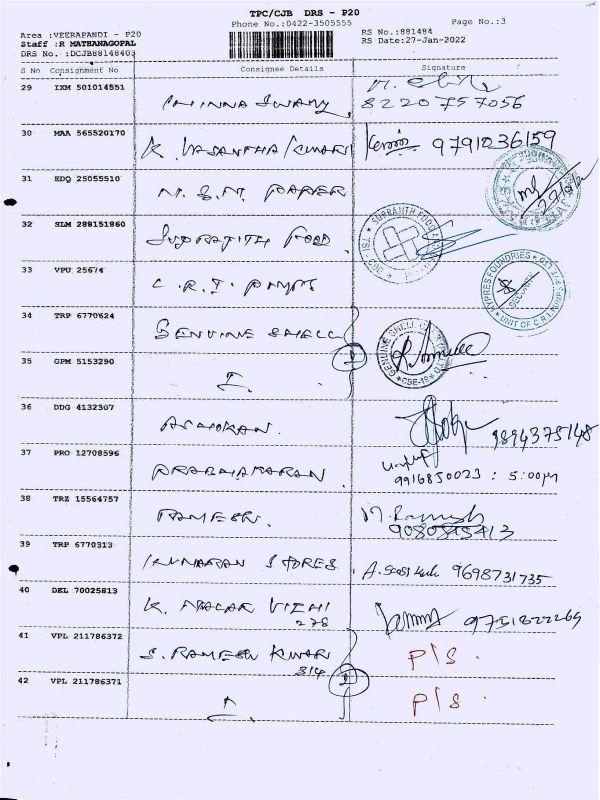 TPC/CJB DRS - P20
Phone No.:0422-3505555
Page No.:3
Area :VEERAPANDI - P20
Staff :R MATHANAGOPAL
DRS No. :DCJB88148403
RS No.:881484
RS Date:27-Jan-2022
S No Consignment No Consignee Details Signature
29 IXM 501014551 CHINNA SWAMY
8220757056
30 MAA 565520170 K. VASANTHA KUMARI 9791036159
31 EDQ 25055510 N. S. N. PAPER
27/1/22
32 SLM 288151860 SUPRAJITH FOOD
33 VPU 25674 C. R. I. PUMPS
CYPRES FOUNDRIES
SECURITY
UNIT OF C.R.I. PUMPS PVT LTD
34 TRP 6770624 GENUINE SHELL
GENUINE SHELL
CBE-18
35 GPM 5153290
36 DDG 4132307 ASHOKAN. 9894375148
37 PRO 12708596 PRABHAKARAN
9916850023 : 5:00pm
38 TRZ 15564757 RAMESH. M. Ramesh
39 TRP 6770313 KUMARAN STORES 9698731735
40 DEL 70025813 K. MALAR VIZHI
278
41 VPL 211786372 S. RAMESH KUMAR P/S.
314
42 VPL 211786371 P/S.